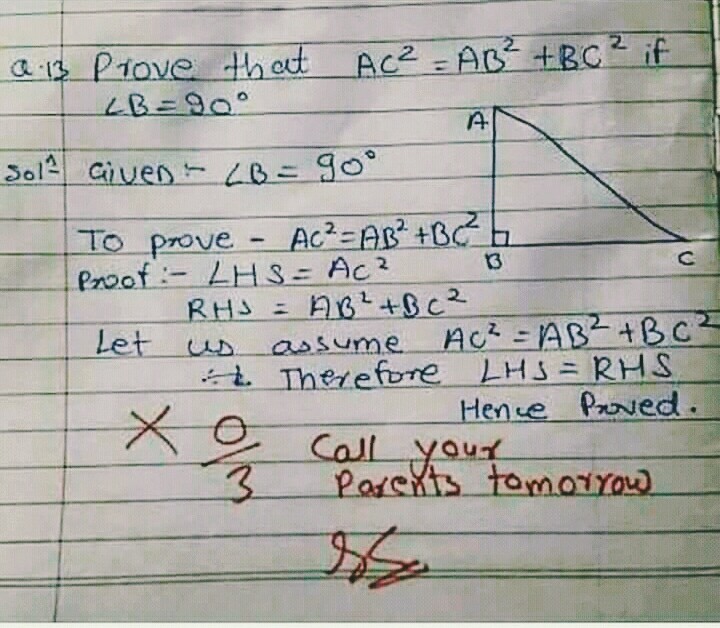 Q.13 Prove that AC² = AB² + BC² if
∠B = 90°
A
Solⁿ Given:- ∠B = 90°
To prove - AC² = AB² + BC²
B
C
Proof:- LHS = AC²
RHS = AB² + BC²
Let us assume AC² = AB² + BC²
∴ Therefore LHS = RHS
Hence Proved.
X 0/3 Call your
Parents tomorrow